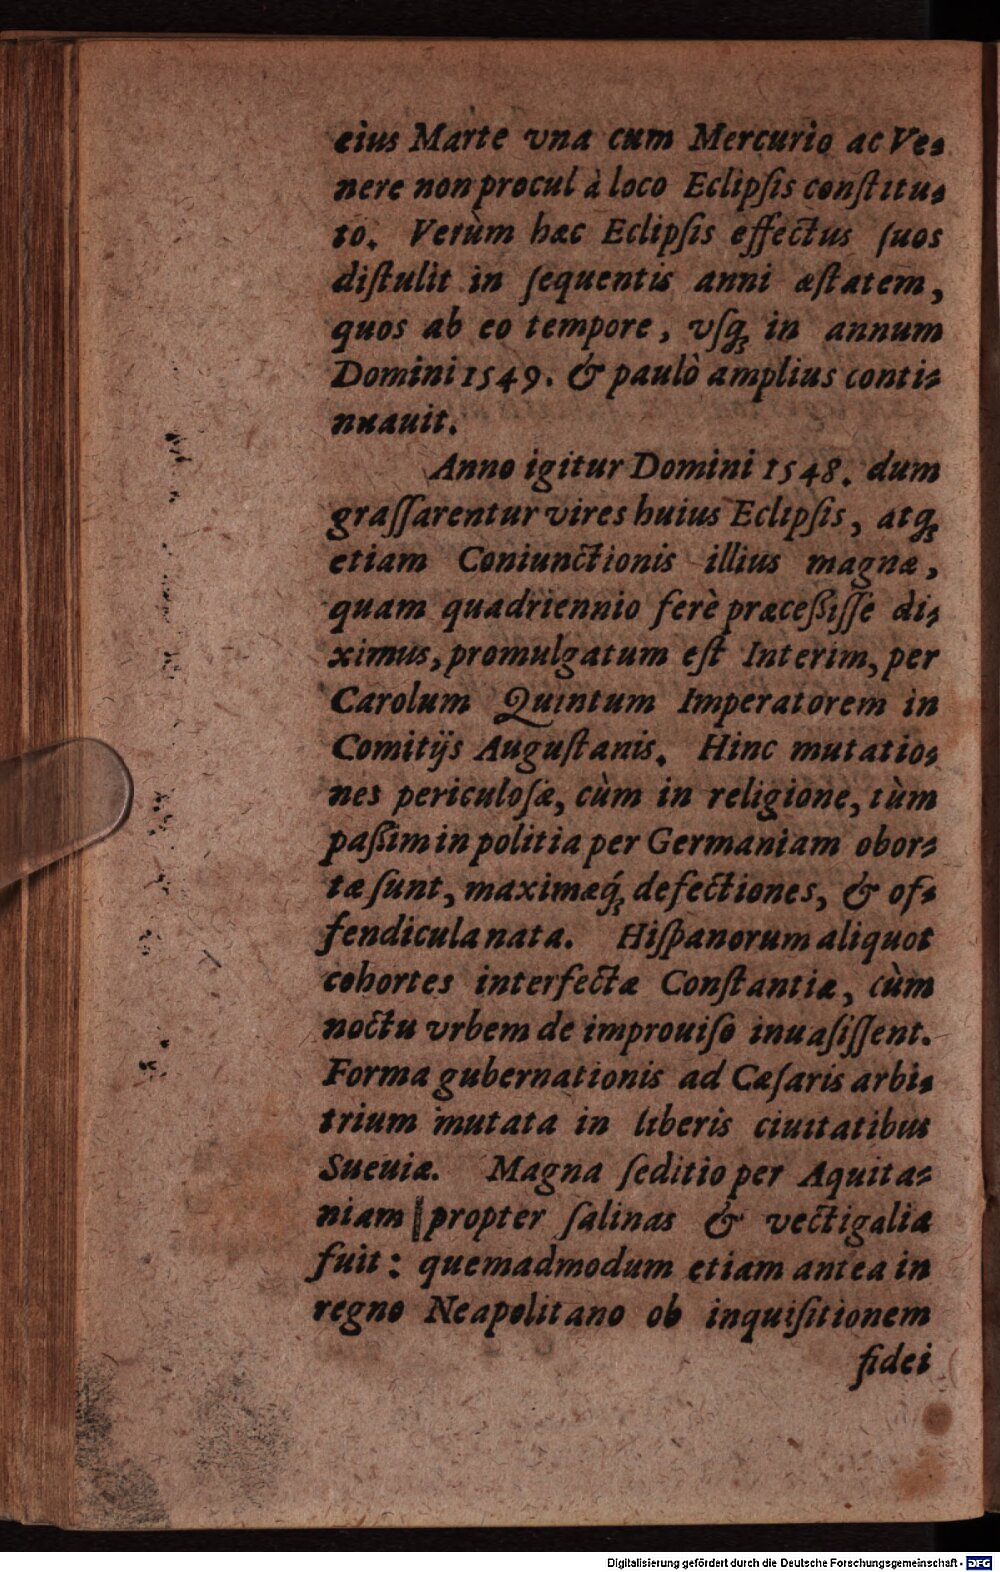 eius Marte vna cum Mercurio ac Ve-
nere non procul à loco Eclipſis conſtitu-
to. Verùm hæc Eclipſis effectus ſuos
diſtulit in ſequentis anni æſtatem,
quos ab eo tempore, vſq; in annum
Domini 1549. & paulò amplius conti-
nuauit.
Anno igitur Domini 1548. dum
graſſarentur vires huius Eclipſis, atq;
etiam Coniunctionis illius magnæ,
quam quadriennio ferè præceßiſſe di-
ximus, promulgatum eſt Interim, per
Carolum Quintum Imperatorem in
Comitijs Auguſtanis. Hinc mutatio-
nes periculoſæ, cùm in religione, tùm
paßim in politia per Germaniam obor-
tæ ſunt, maximæq́; defectiones, & of-
fendicula nata. Hiſpanorum aliquot
cohortes interfectæ Conſtantiæ, cùm
noctu vrbem de improuiſo inuaſiſſent.
Forma gubernationis ad Cæſaris arbi-
trium mutata in liberis ciuitatibus
Sueuiæ. Magna ſeditio per Aquita-
niam propter ſalinas & vectigalia
fuit: quemadmodum etiam antea in
regno Neapolitano ob inquiſitionem
fidei
Digitalisierung gefördert durch die Deutsche Forschungsgemeinschaft - DFG